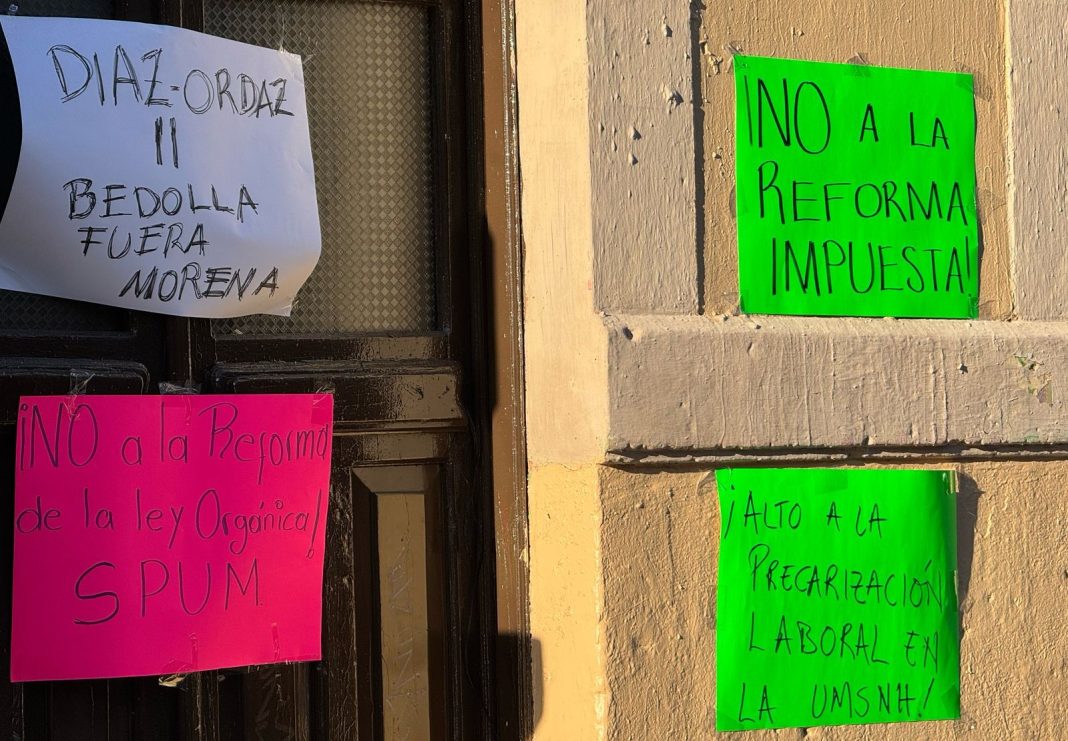 DIAZ-ORDAZ
II
BEDOLLA
FUERA
MORENA
¡NO a la Reforma
de la ley Orgánica!
SPUM.
¡NO A LA
REFORMA
IMPUESTA!
¡ALTO A LA
PRECARIZACIÓN
LABORAL EN
LA UMSNH!